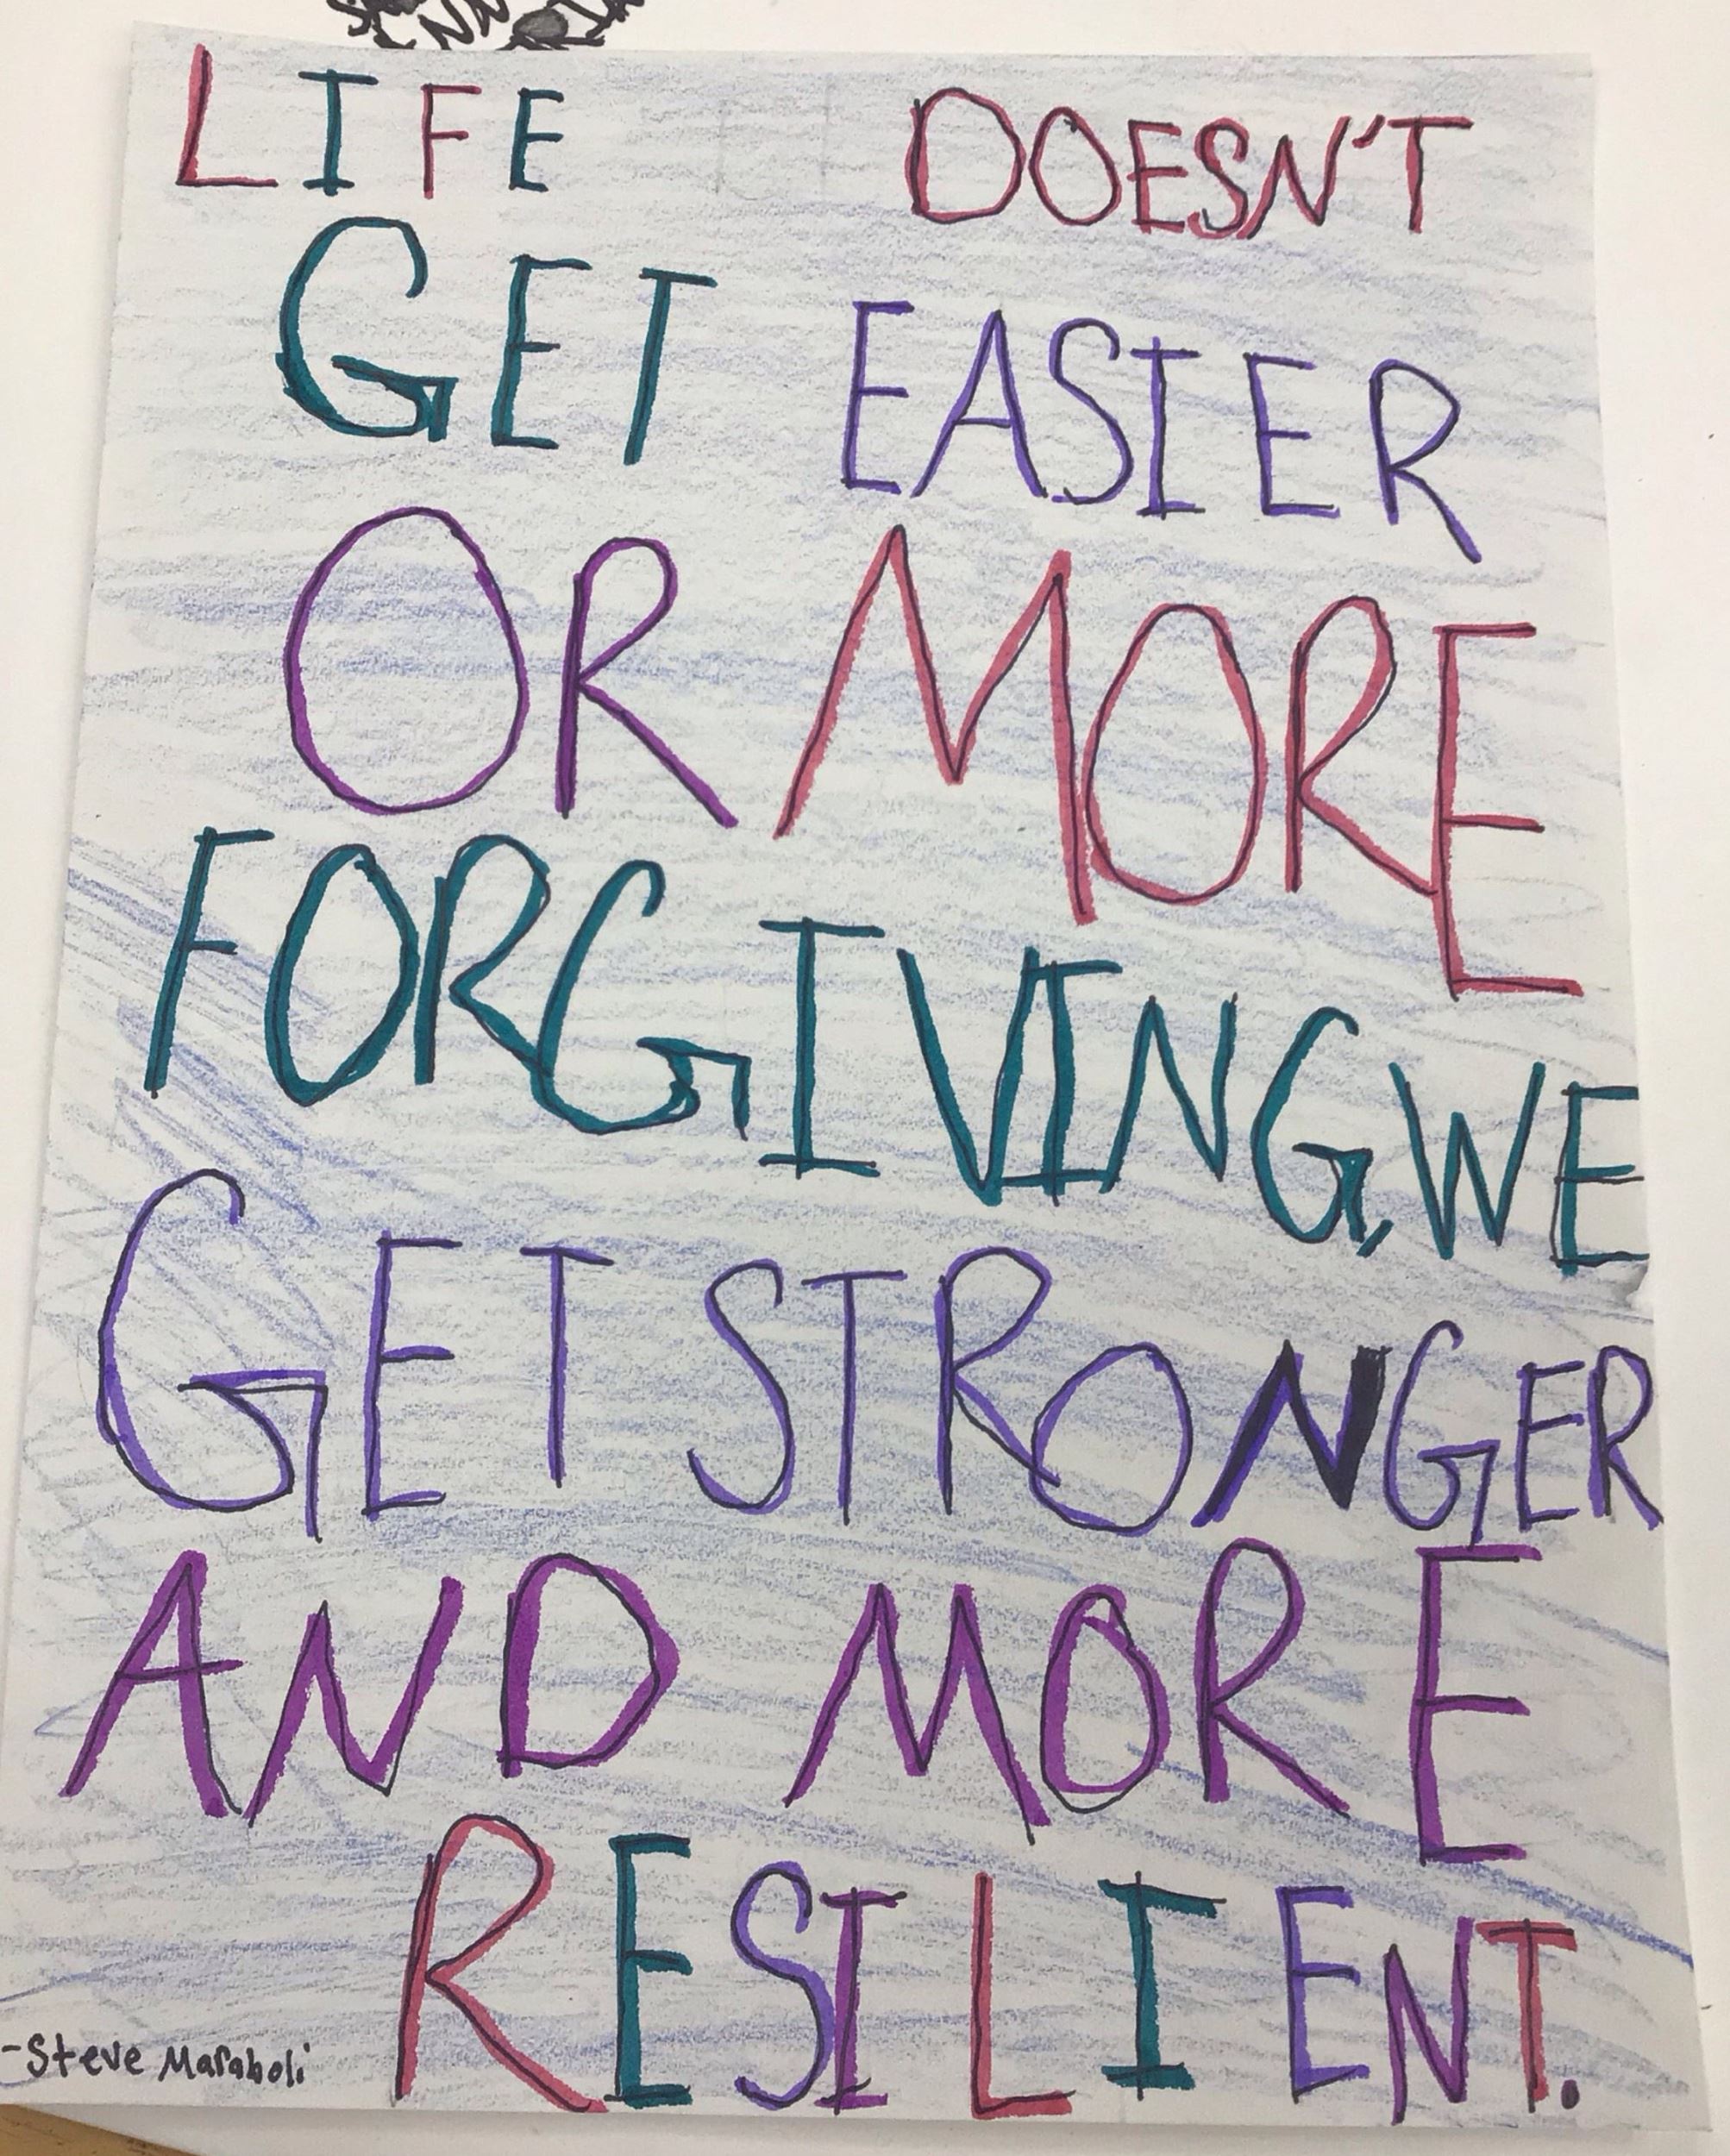 LIFE DOESN'T
GET EASIER
OR MORE
FORGIVING, WE
GET STRONGER
AND MORE
RESILIENT.
-Steve Maraboli